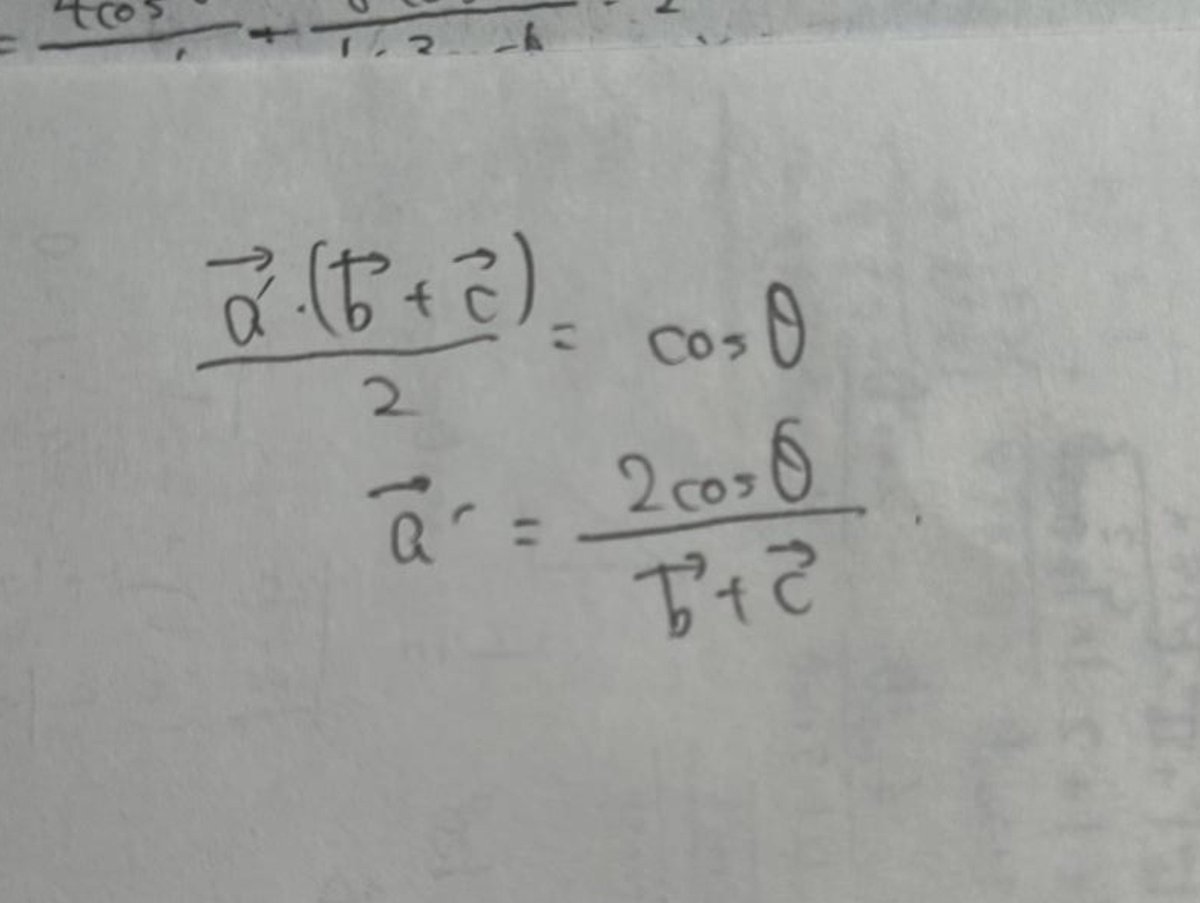 = 4cos +
a⃗′·(b⃗ + c⃗) / 2 = cos θ
a⃗′ = 2cos θ / (b⃗ + c⃗) .